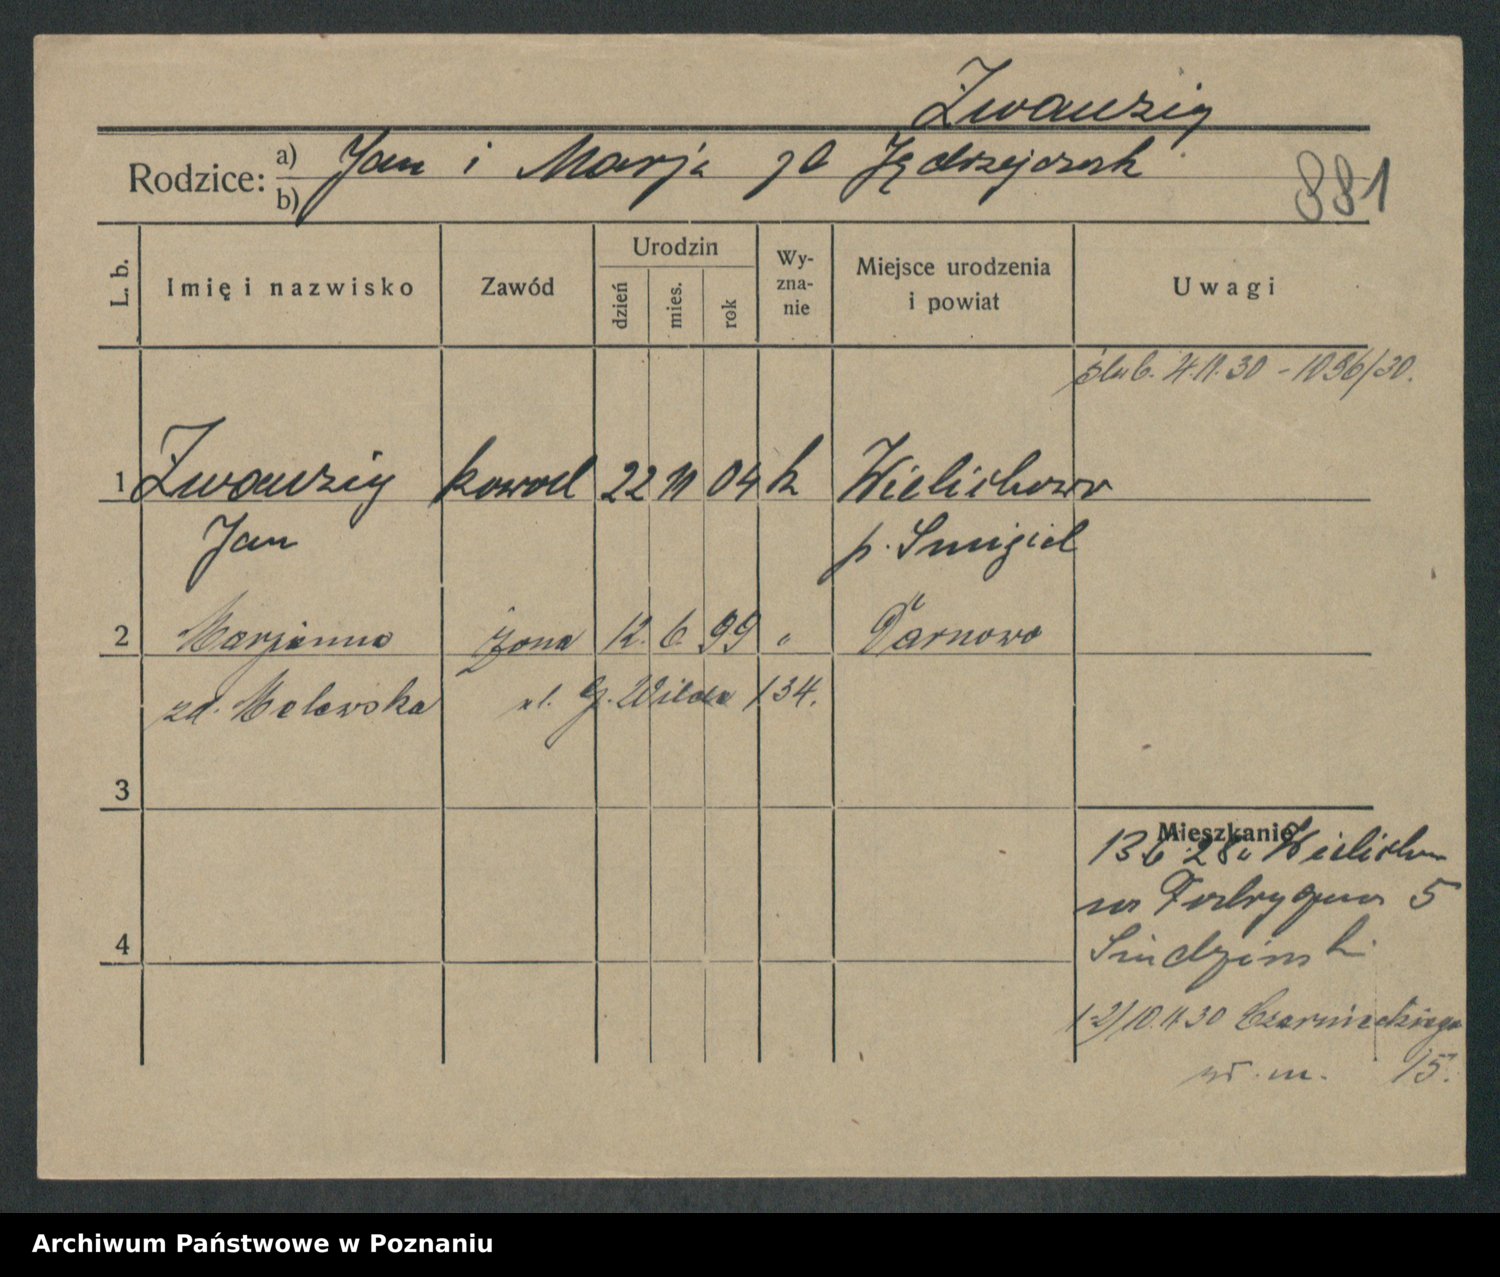 Zwanzig
Rodzice:
a) Jan i Marja zd Jędrzejczak
b)
881
L. b.
Imię i nazwisko
Zawód
Urodzin
dzień
mies.
rok
Wy-
zna-
nie
Miejsce urodzenia
i powiat
Uwagi
ślub. 4.11.30 - 1096/30.
1 Zwanzig kowal 22 11 04 k Wielichowo
Jan p. Śmigiel
2 Marjanna żona 12. 6. 99 " Darnowo
zd. Malewska ul. G. Wilda 134.
3
Mieszkanie
13 6 28 Wielichowo
na Fabryczna 5
4
1-2/10.11.30 Czarnieckiego
w. m. 15.
Archiwum Państwowe w Poznaniu